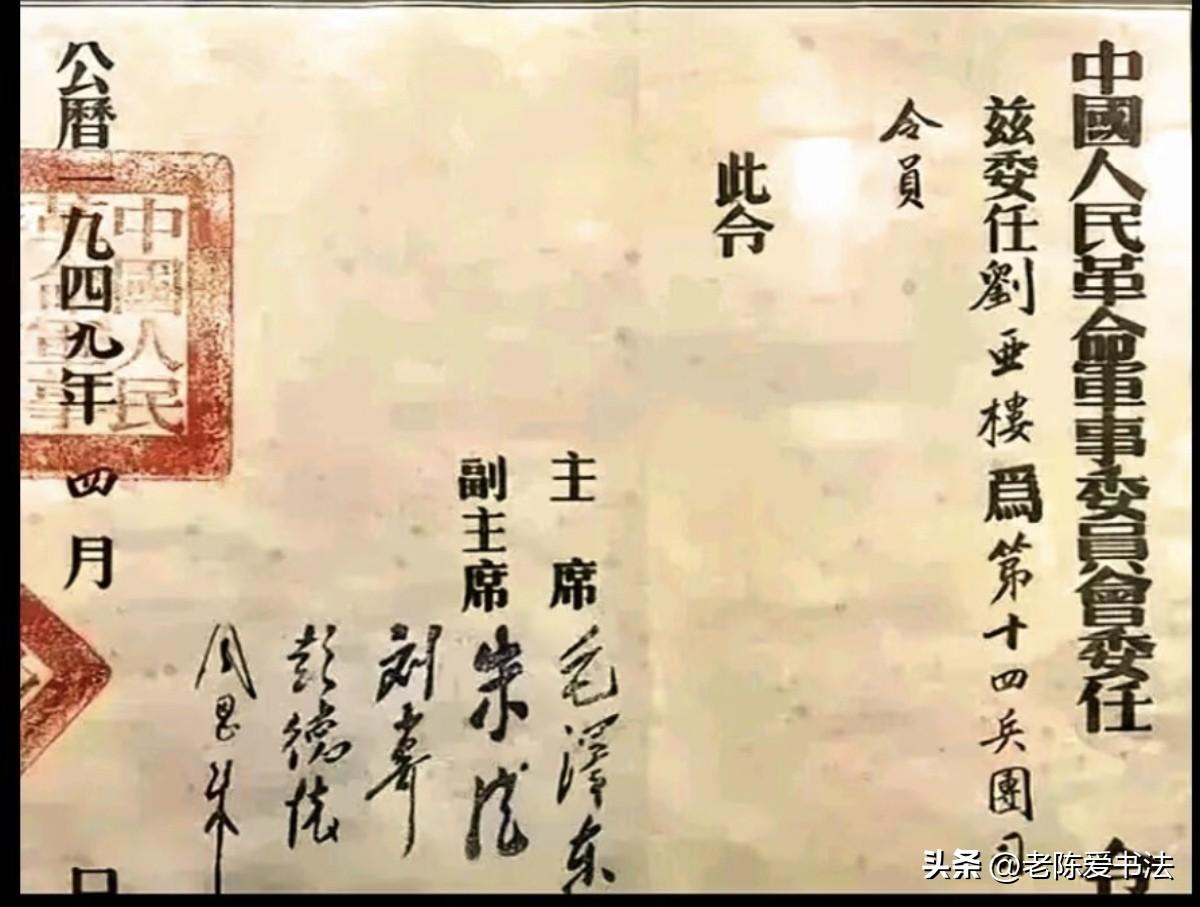 中國人民革命軍事委員會委任令
兹委任劉亜樓爲第十四兵團司
令員
此令
主席毛澤东
副主席朱德
刘少奇
彭德怀
周恩来
公曆一九四九年四月日
中國人民
革命軍事
头条 @老陈爱书法